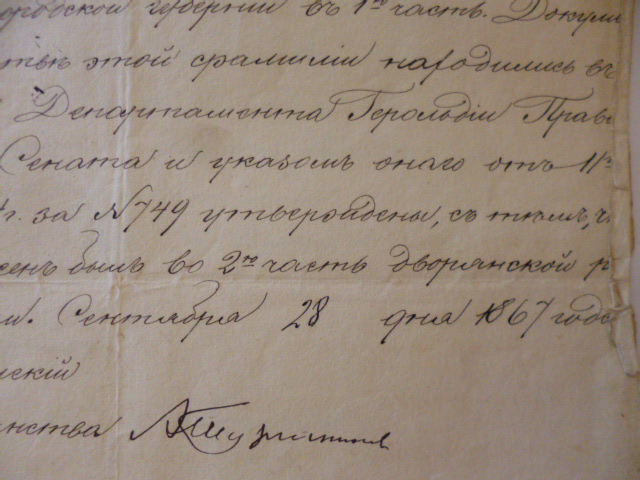 городской губернии въ 1ю часть. Докуме
этой фамилии находились въ
Департамента Герольдіи Прав
Сената и указомъ онаго отъ 11го
г. за № 749 утверждены, съ тѣмъ, ч
сенъ былъ во 2ю часть дворянской р
м. Сентября 28 дня 1867 года
нскій
нства